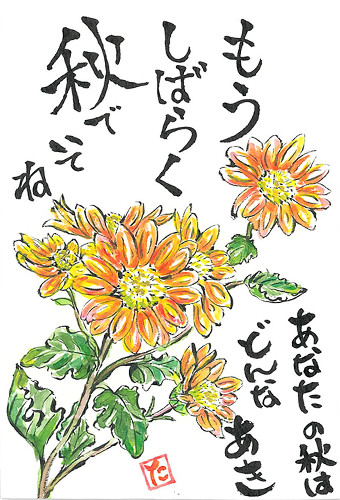 もう
しばらく
秋で
いてね
あなたの秋は
どんな
あき
た